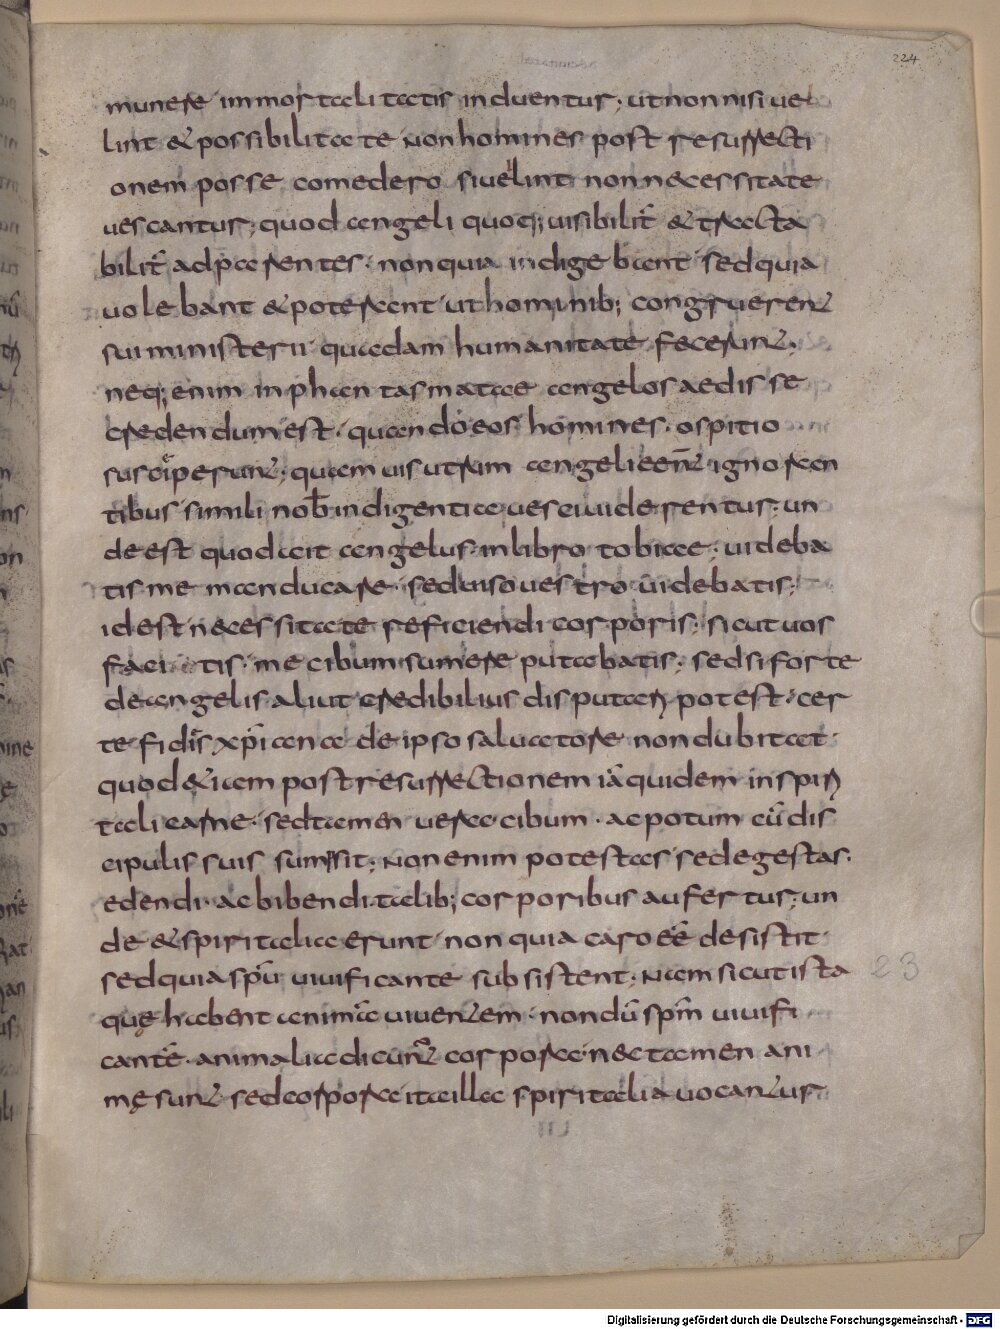 224
munere immortalitatis induentur; ut non nisi vel
lint & possibilitate non homines post resurrecti
onem posse comedero si uelint non necessitate
uescantur; quod angeli quoq; uisibilit̄ & tracta
bilit̄ adparentes· non quia indigebant sed quia
uolebant & poterant ut hominib; congruerent
sui ministerii quadam humanitate fecerunt·
neq; enim in phantasmatae angelos aedisse
credendum est· quando eos homines· ospitio
susciperunt; quam uis utrum angeli eent̄ ignoran
tibus simili nob̄ indigentia uesci uiderentur; un
de est quod ait angelus in libro tobiae; uideba
tis me manducare sed uiso uestro uidebatis;
id est necessitate reficiendi corporis; sicut uos
faci tis· me cibum sumere putabatis; sed si forte
de angelis aliut credibilius disputari potest· cer
te fidis xp̄iana de ipso saluatore non dubitat·
quod etiam post resurrectionem iā quidem in spiri
tali carne· sed tamen uera cibum· ac potum cū dis
cipulis suis sumsit; non enim potestas sed egestas·
edendi· ac bibendi talib; corporibus aufertur; un
de & spiritalia erunt· non quia caro eē desistit·
sed quia sp̄u uiuificante subsistent; nam sicut ista
quę habent animā uiuentem· nondū sp̄m uiuifi
cantē· animalia dicunt̄ corpora· nec tamen ani
mę sunt sed corpora ita illa spiritalia uocantur
23
Digitalisierung gefördert durch die Deutsche Forschungsgemeinschaft - DFG